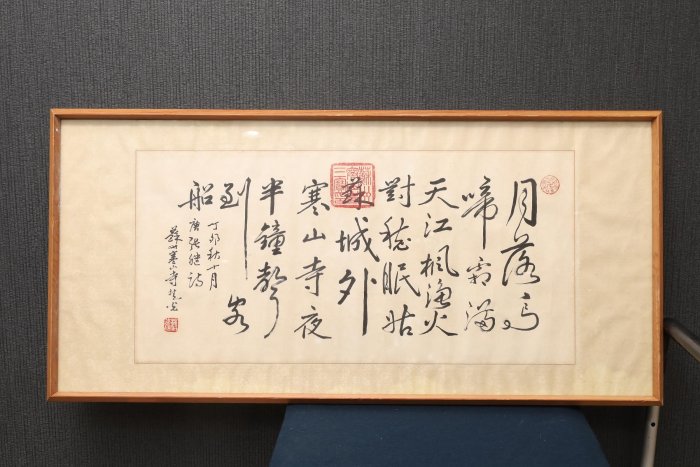 月落烏
啼霜滿
天江楓漁火
對愁眠姑
蘇城外
寒山寺夜
半鐘聲
到客
船
丁卯秋十月
唐張繼詩
蘇州寒山寺性空